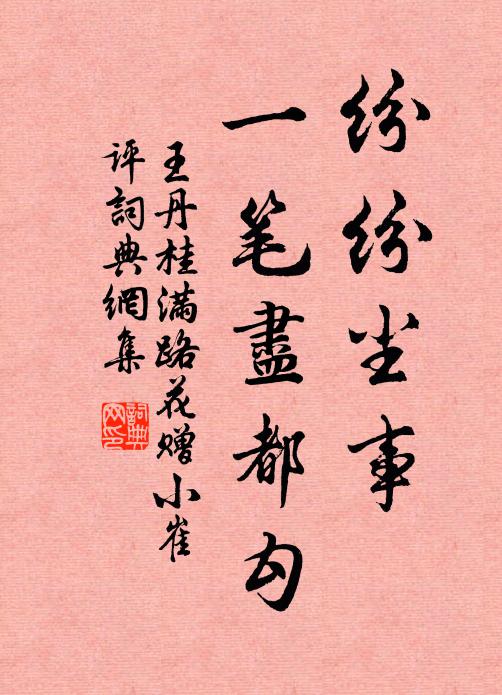 纷纷尘事
一笔盡都勾
王丹桂满路花赠小崔
评詞典網集
詞典网印